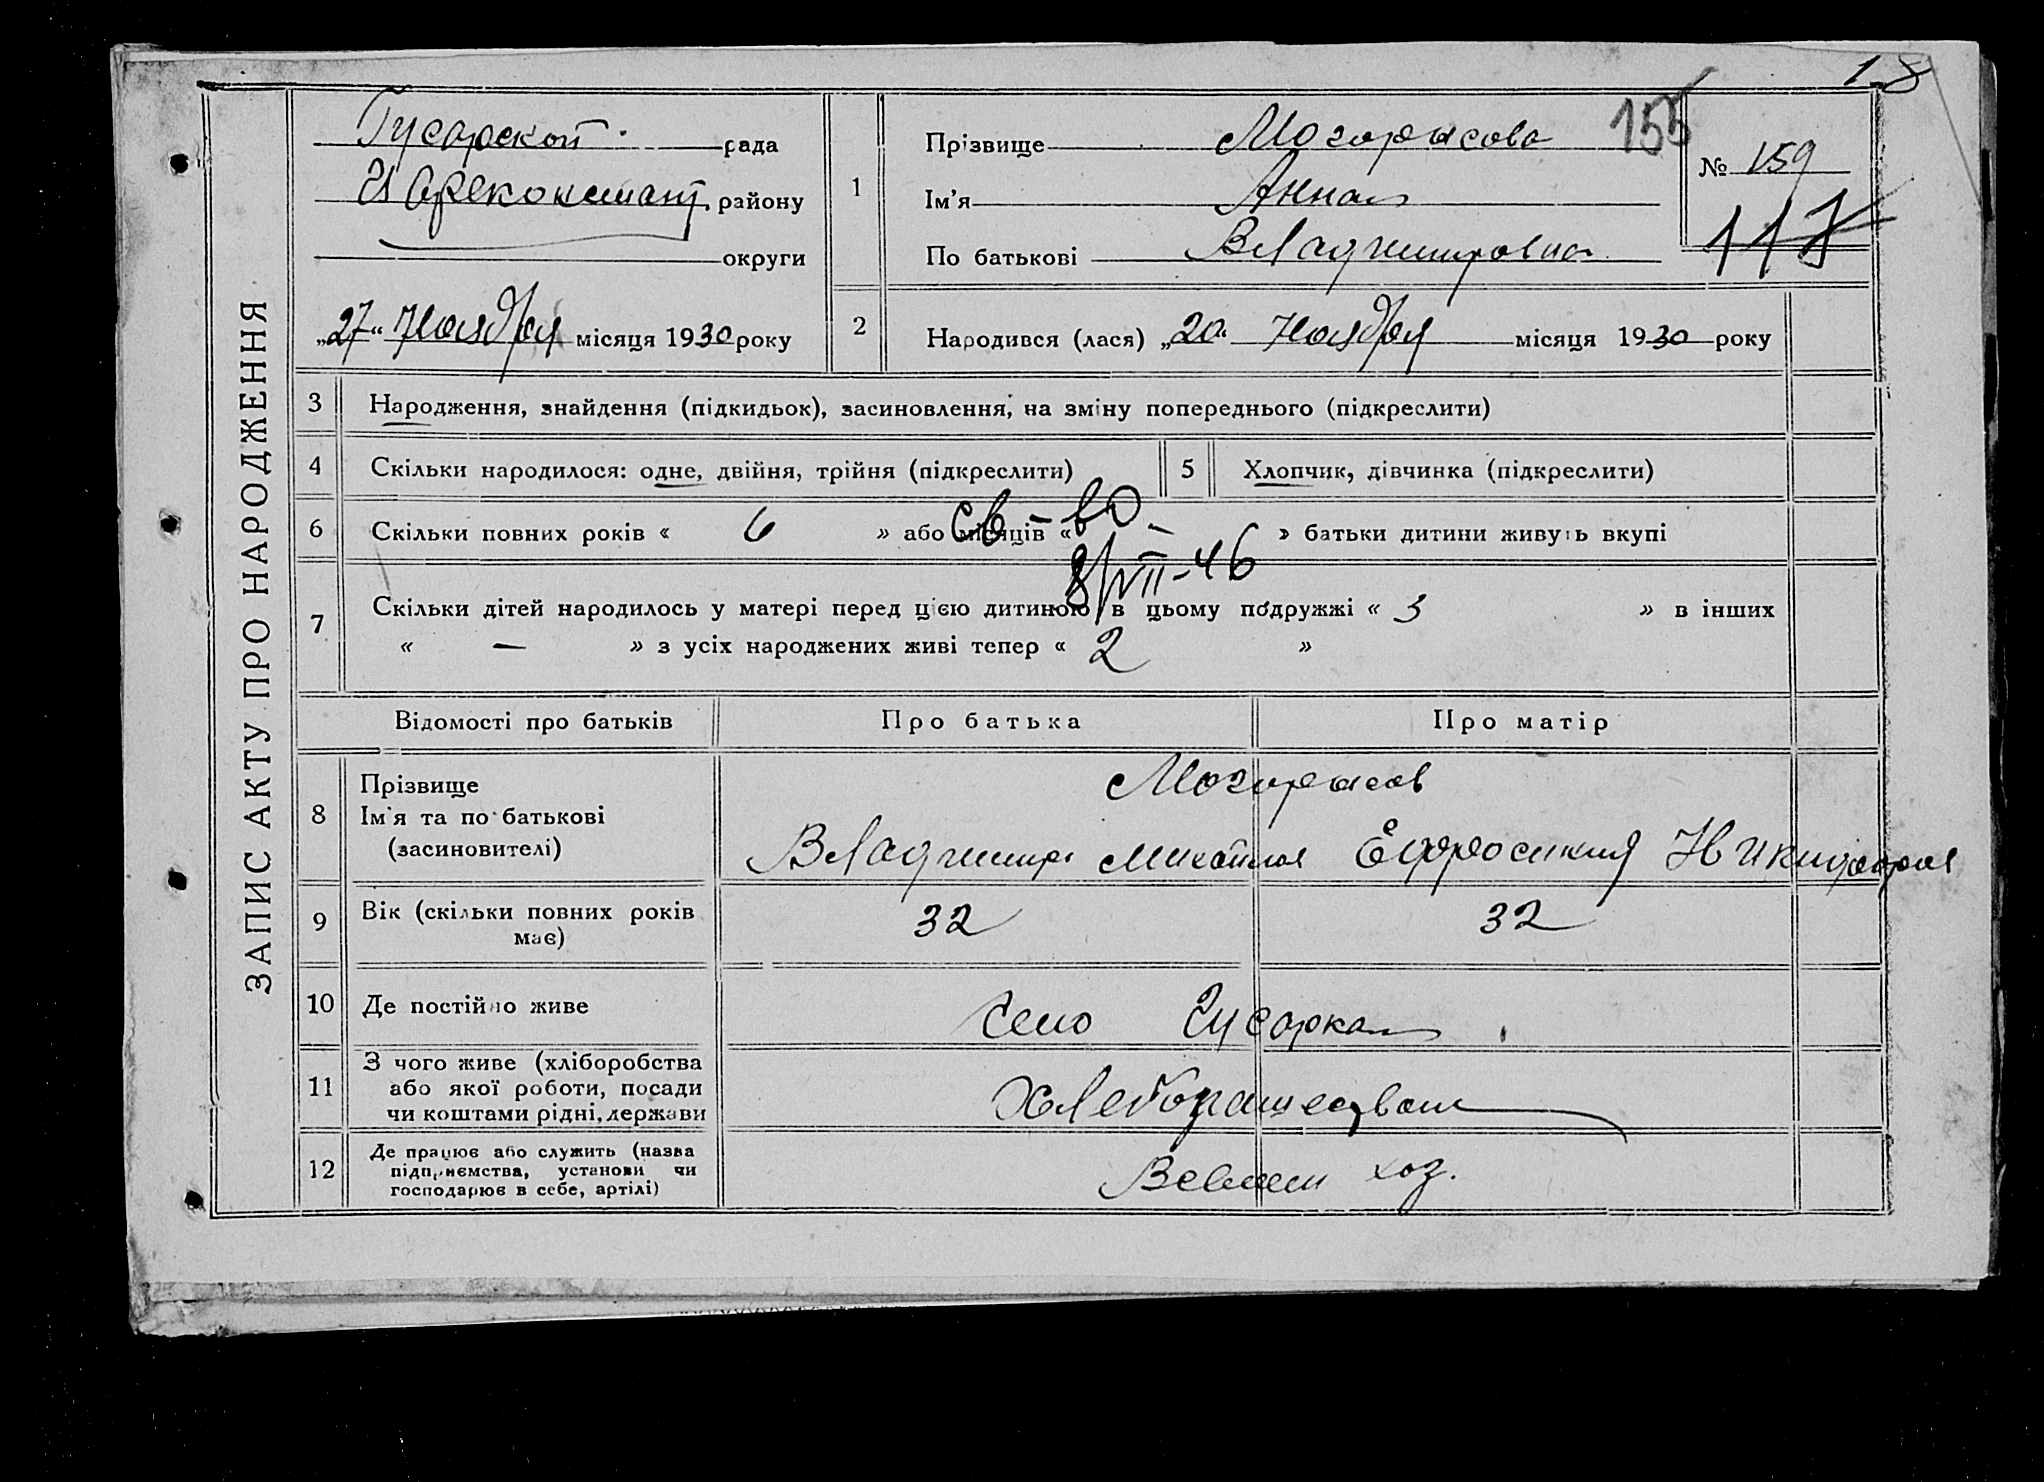 18
ЗАПИС АКТУ ПРО НАРОДЖЕННЯ
Гусарской рада
Цареконстант. району
округи
„27“ Ноября місяця 1930 року
1
Прізвище Могорысова
Ім'я Анна
По батькові Владимировна
155
№ 159
117
2
Народився (лася) „20“ Ноября місяця 1930 року
3 Народження, знайдення (підкидьок), засиновлення, на зміну попереднього (підкреслити)
4 Скільки народилося: одне, двійня, трійня (підкреслити)
5 Хлопчик, дівчинка (підкреслити)
6 Скільки повних років « 6 » або місяців « » батьки дитини живуть вкупі
Св-во
8/VII-46
7 Скільки дітей народилось у матері перед цією дитиною в цьому подружжі « 3 » в інших
« — » з усіх народжених живі тепер « 2 »
Відомості про батьків Про батька Про матір
8 Прізвище
Ім'я та по батькові
(засиновителі)
Могорысов
Владимир Михайлов Ефросиния Никифоров
9 Вік (скільки повних років має)
32 32
10 Де постійно живе
Село Гусарка
11 З чого живе (хліборобства
або якої роботи, посади
чи коштами рідні, держави
Хлебопашеством
12 Де працює або служить (назва
підприємства, установи чи
господарює в себе, артілі)
В своем хоз.